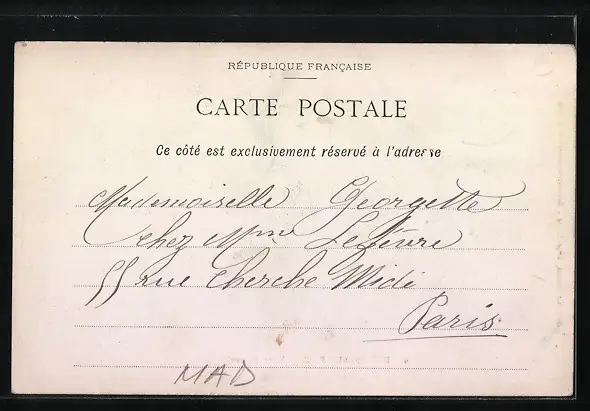 RÉPUBLIQUE FRANÇAISE
CARTE POSTALE
Ce côté est exclusivement réservé à l'adresse
Mademoiselle Georgette
chez Mme Lefèvre
55 rue Cherche Midi
Paris
MAD